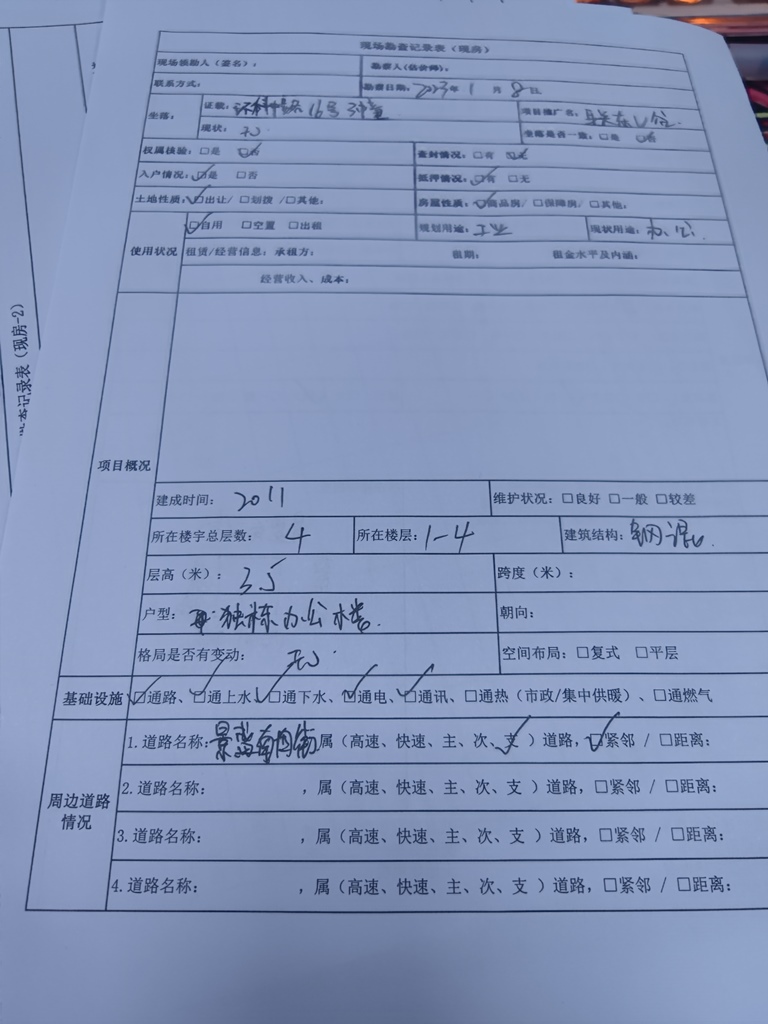 现场勘查记录表（现房）
现场领勘人（签名）： 勘察人(估价师)：
联系方式： 勘察日期：2023年1月8日
坐落： 证载： 16号 项目推广名： 联东U谷
现状：无 坐落是否一致：□是 ☑否
权属核验：□是 ☑否 查封情况：□有 ☑无
入户情况：☑是 □否 抵押情况：☑有 □无
土地性质：☑出让/ □划拨 /□其他： 房屋性质：☑商品房/ □保障房/ □其他：
使用状况 ☑自用 □空置 □出租 规划用途：工业 现状用途：办公
租赁/经营信息：承租方： 租期： 租金水平及内涵：
经营收入、成本：
项目概况
建成时间：2011 维护状况：□良好 □一般 □较差
所在楼宇总层数：4 所在楼层：1-4 建筑结构：钢混
层高（米）：3.5 跨度（米）：
户型：独栋办公楼 朝向：
格局是否有变动：无 空间布局：□复式 □平层
基础设施 ☑通路、☑通上水、☑通下水、☑通电、☑通讯、□通热（市政/集中供暖）、□通燃气
周边道路情况
1.道路名称： 属（高速、快速、主、次、支✓）道路，☑紧邻 / □距离：
2.道路名称： ，属（高速、快速、主、次、支 ）道路，□紧邻 / □距离：
3.道路名称： ，属（高速、快速、主、次、支 ）道路，□紧邻 / □距离：
4.道路名称： ，属（高速、快速、主、次、支 ）道路，□紧邻 / □距离：
记录表（现房-2）